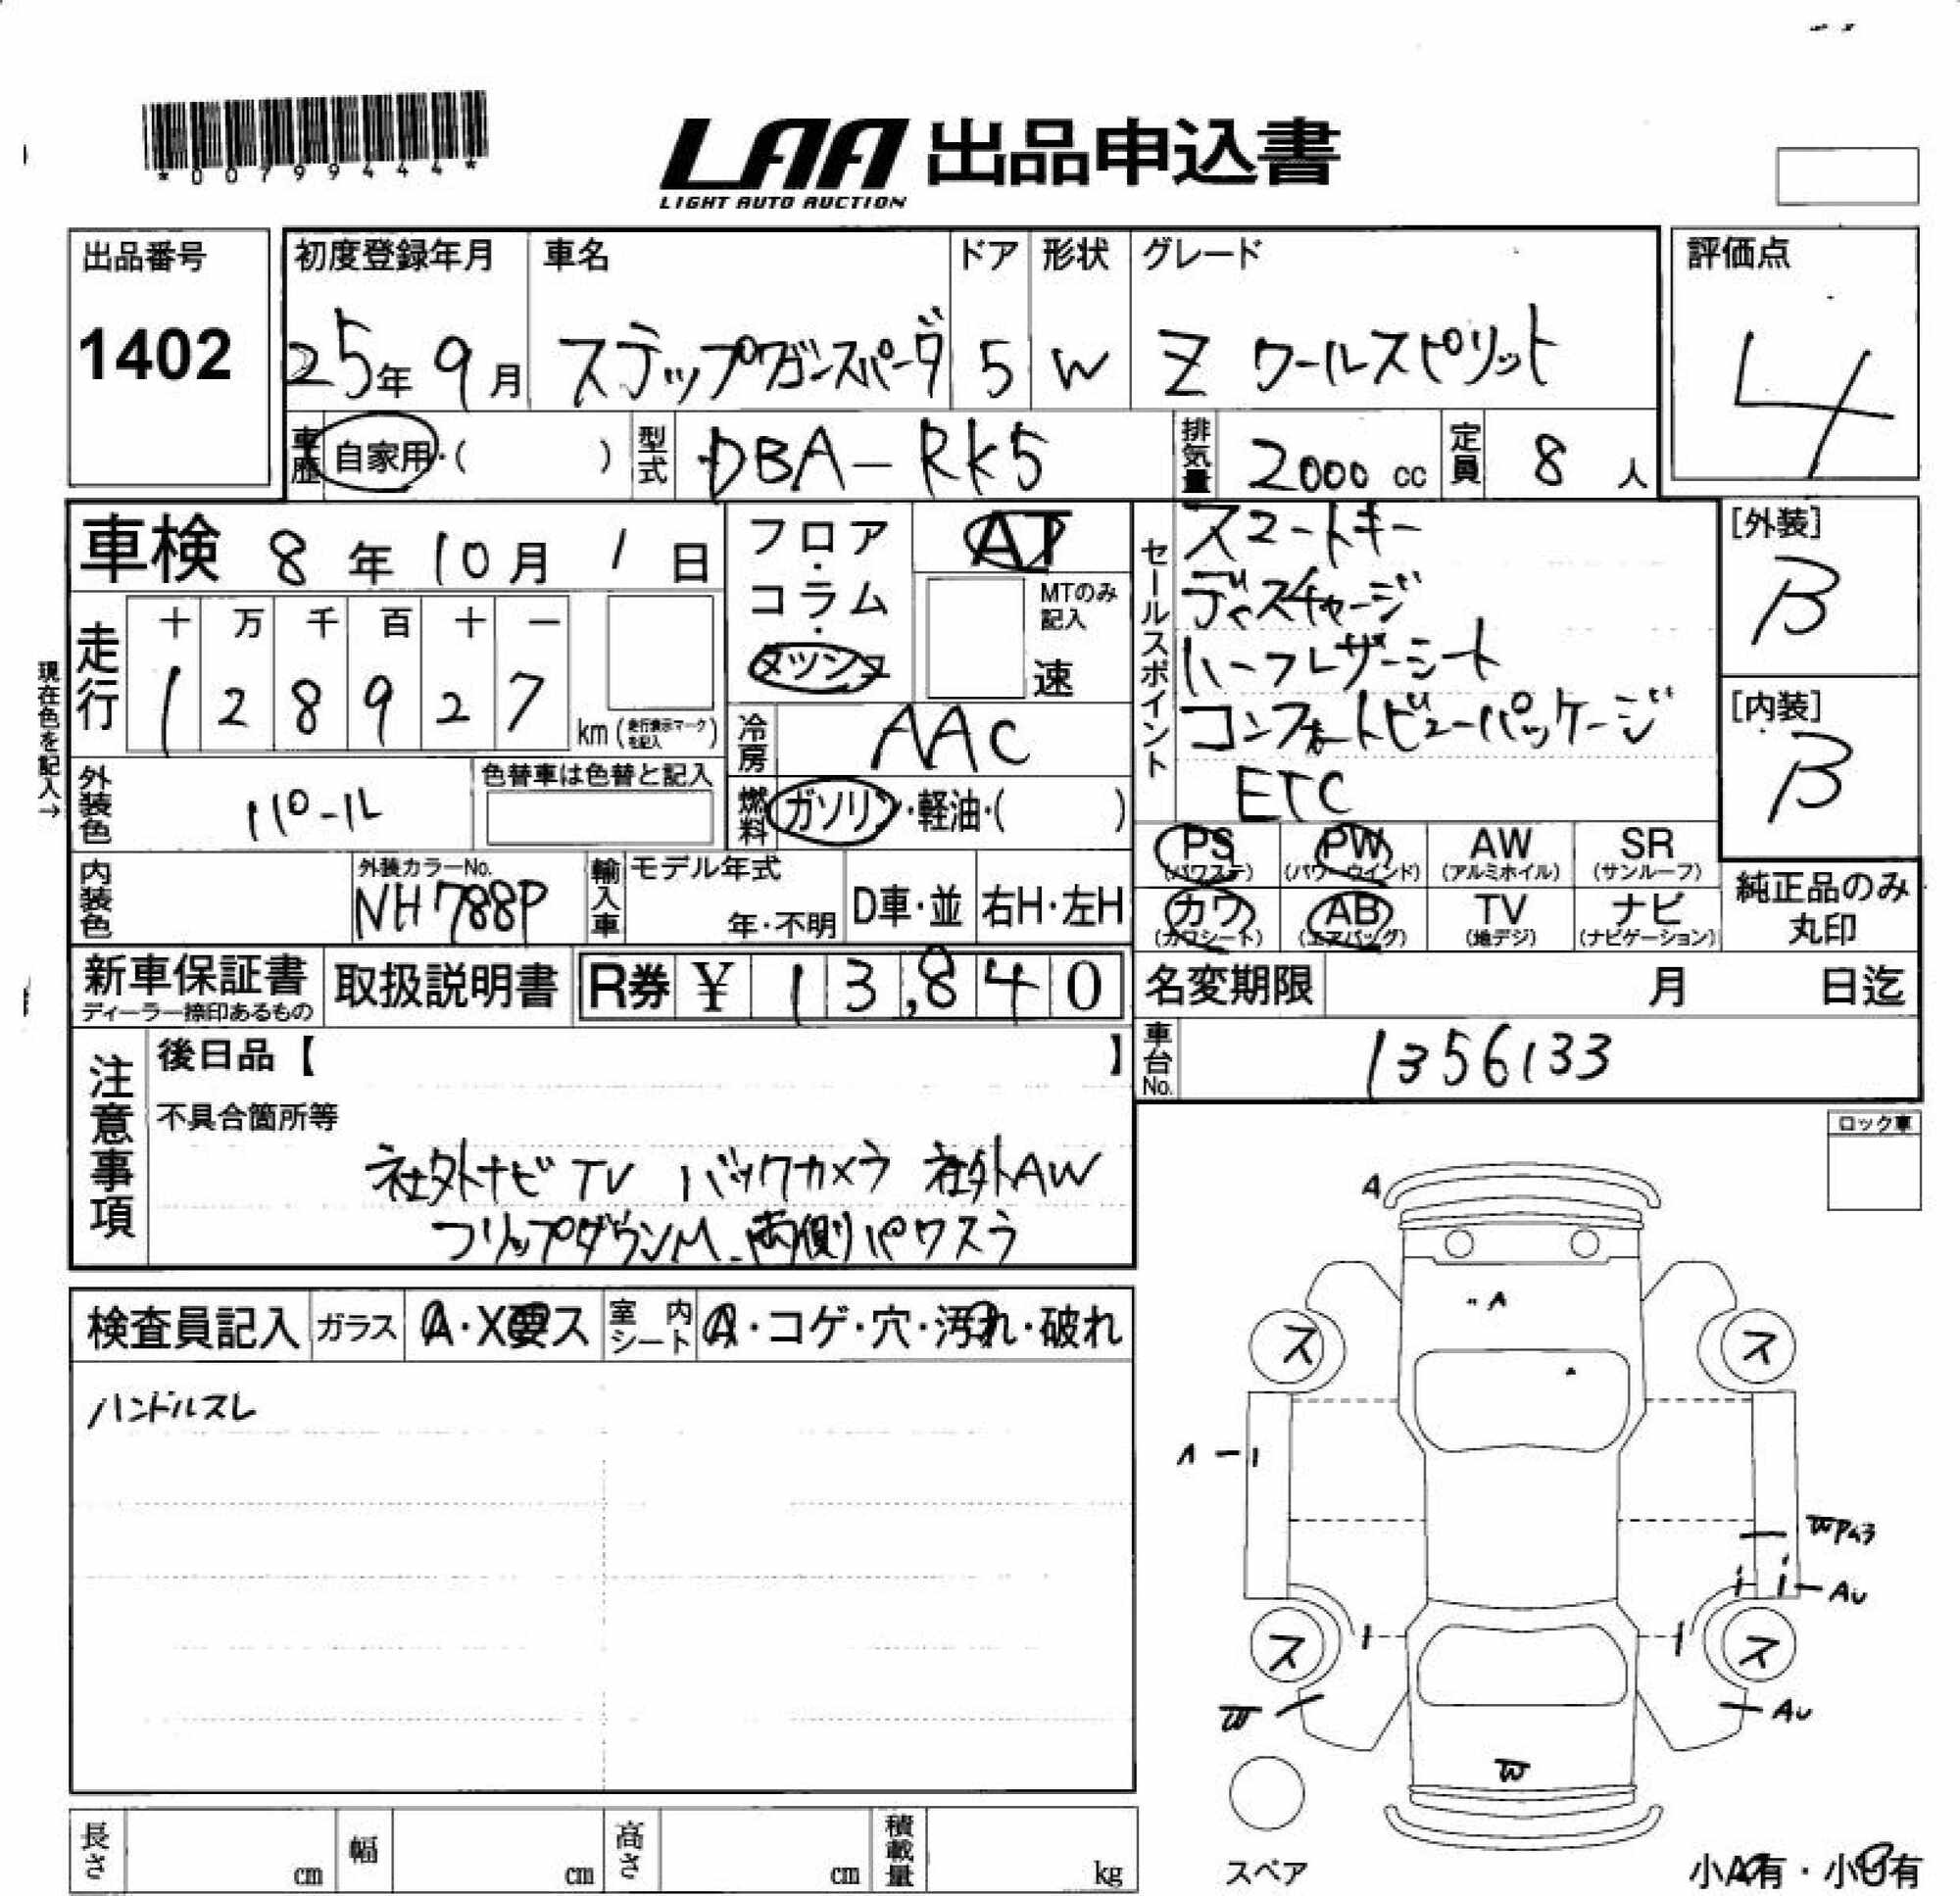 *00799444*
LAA 出品申込書
LIGHT AUTO AUCTION
出品番号
1402
初度登録年月 車名 ドア 形状 グレード
25年9月 ステップワゴンスパーダ 5 W Z クールスピリット
評価点
4
車歴 自家用・( ) 型式 DBA-RK5 排気量 2000 cc 定員 8 人
車検 8年10月1日
フロア・コラム・メツシュ
AT
MTのみ記入
速
セールスポイント
スマートキー
ディスチャージ
ハーフレザーシート
コンフォートビューパッケージ
ETC
[外装]
B
[内装]
B
現在色を記入→
走行 十 万 千 百 十 一
1 2 8 9 2 7 km (走行表示マークを記入)
冷房 AAC
外装色 パール 色替車は色替と記入
燃料 ガソリン・軽油・( )
PS (パワステ) PW (パワーウインド) AW (アルミホイル) SR (サンルーフ)
カワ (カワシート) AB (エアバッグ) TV (地デジ) ナビ (ナビゲーション)
純正品のみ丸印
内装色 外装カラーNo. NH788P 輸入車 モデル年式 年・不明 D車・並 右H・左H
新車保証書 ディーラー捺印あるもの 取扱説明書 R券 ¥ 13,840
名変期限 月 日迄
車台No. 1356133
注意事項
後日品【 】
不具合箇所等
社外ナビ TV バックカメラ 社外AW
フリップダウンM 両側パワスラ
ロック車
検査員記入 ガラス A・X要ス 室内シート A・コゲ・穴・汚れ・破れ
ハンドルスレ
A
A
ス ス
A
W Pんう
AU
ス ス
W
AU
W
スペア
小A有・小U有
長さ cm 幅 cm 高さ cm 積載量 kg